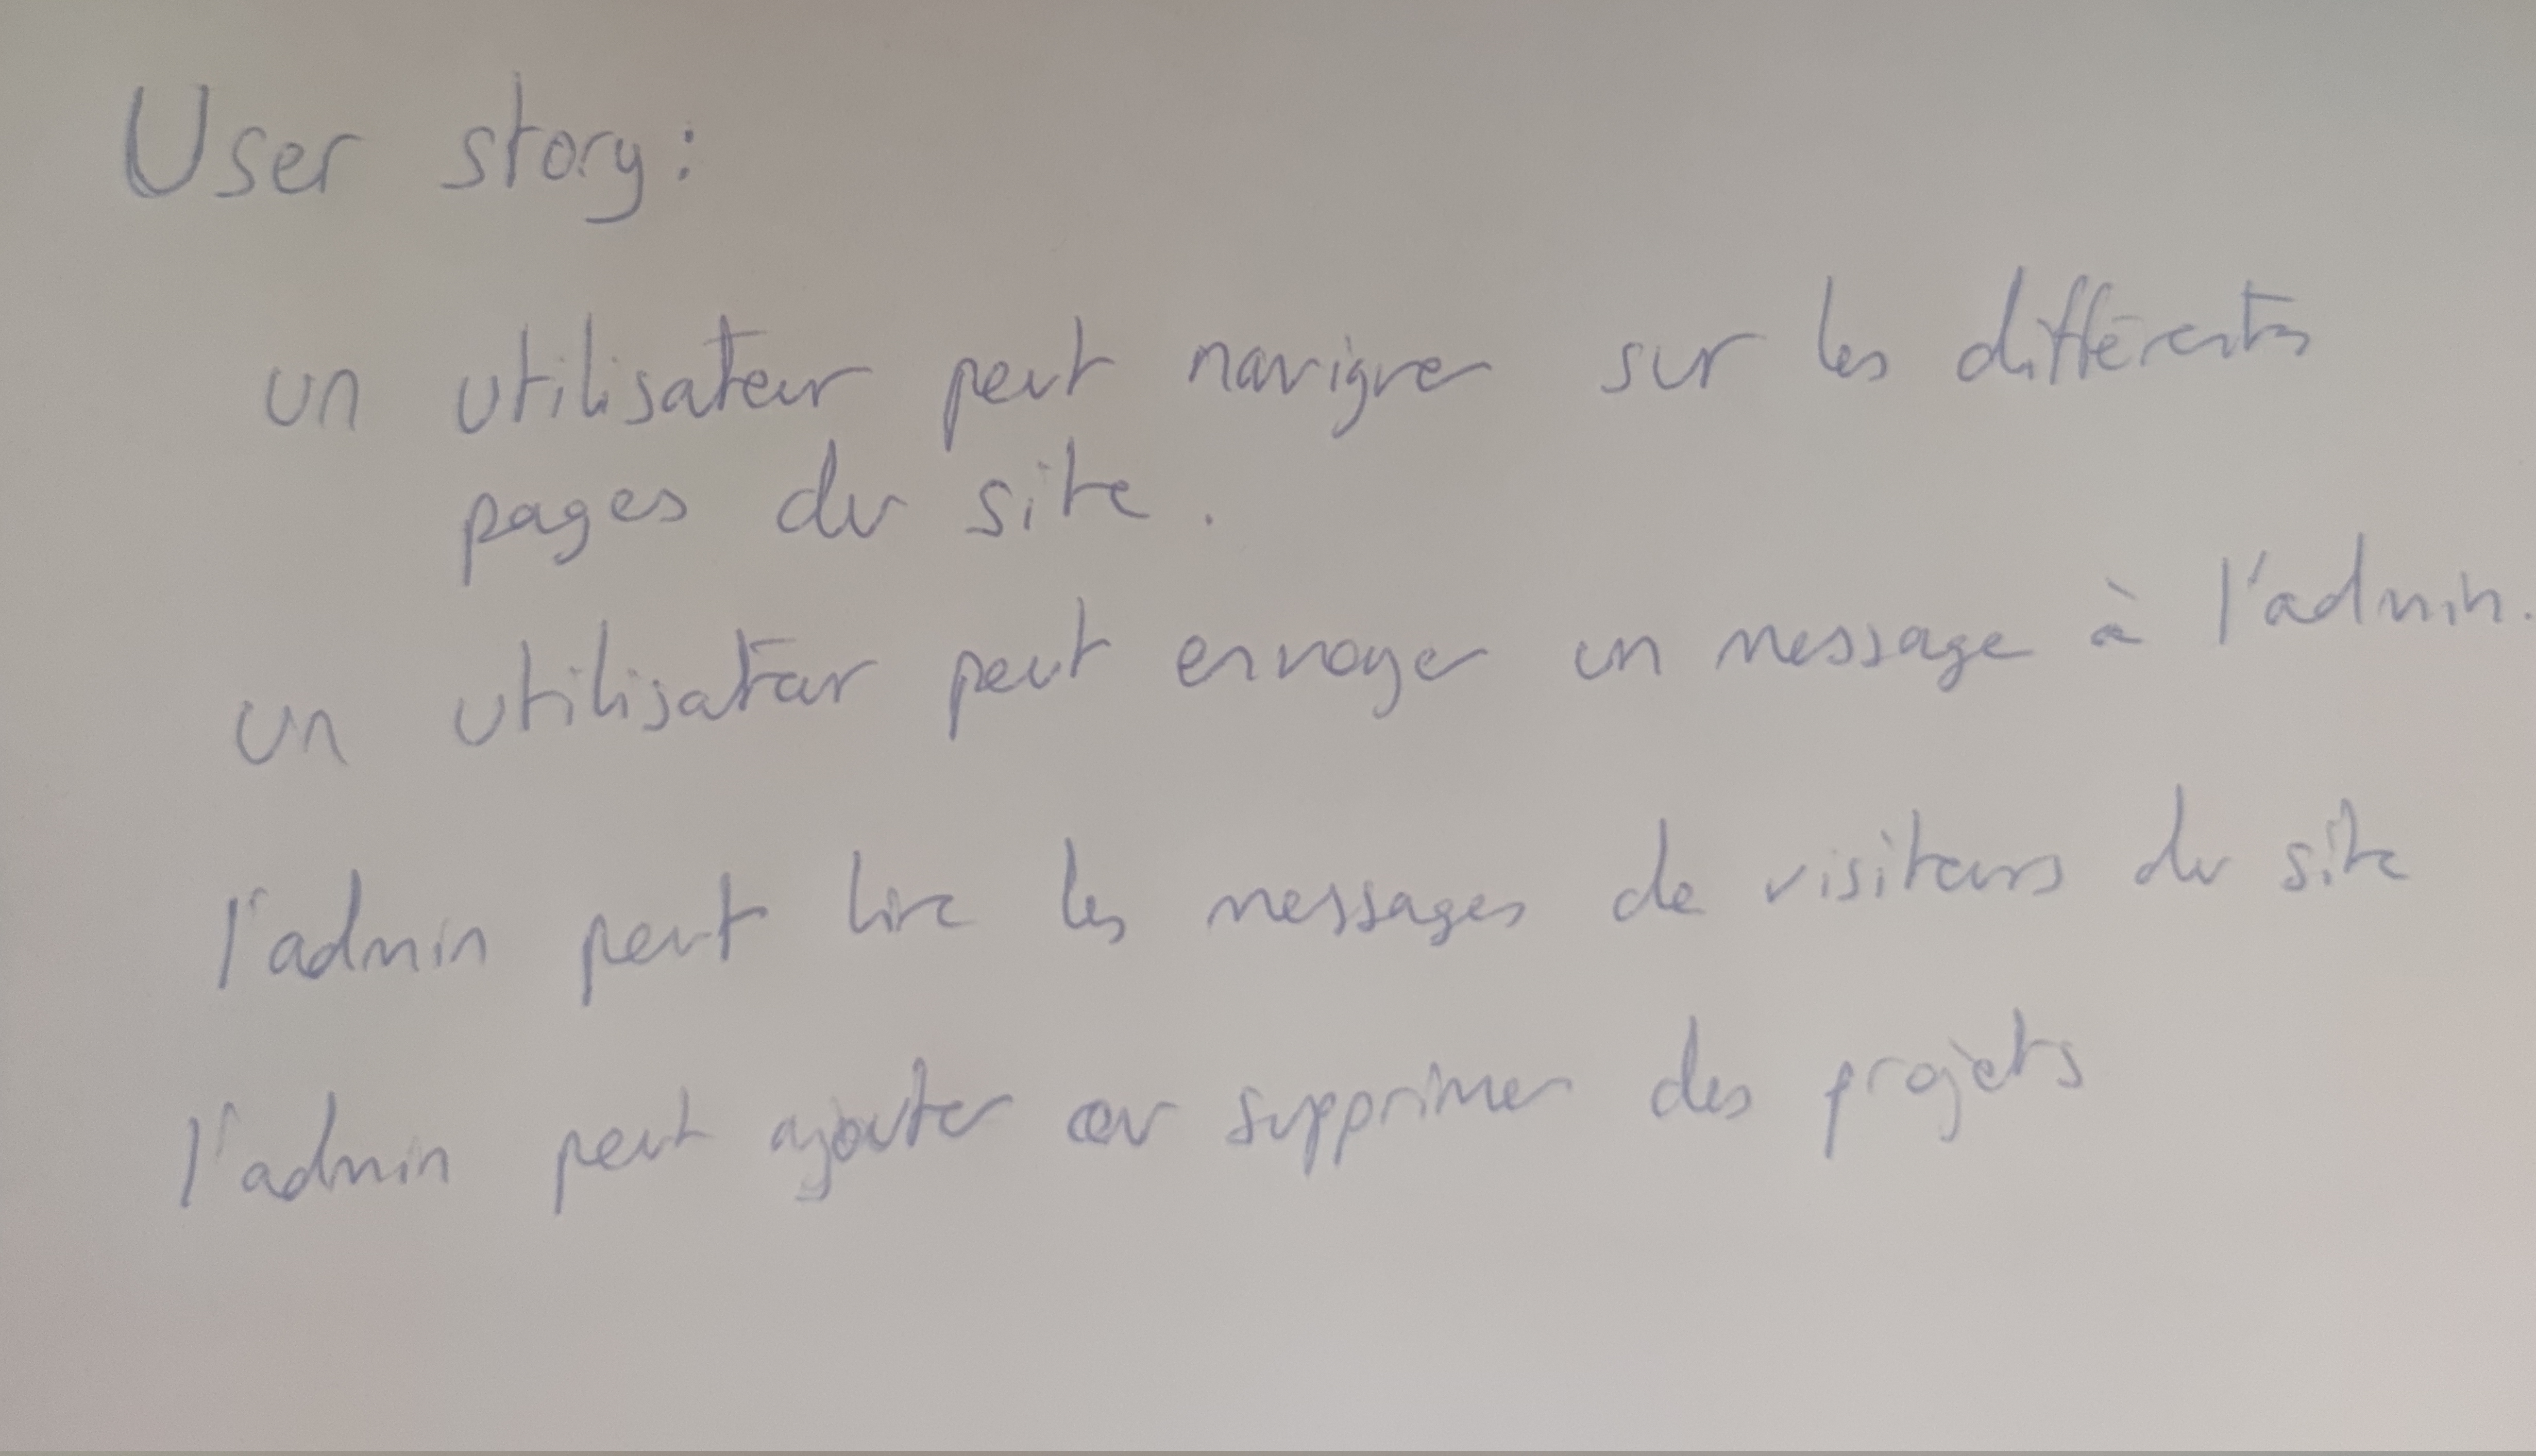 User story:
un utilisateur peut naviguer sur les différents
pages du site.
un utilisateur peut envoyer un message à l'admin.
l'admin peut lire les messages de visiteurs du site
l'admin peut ajouter ou supprimer des projets